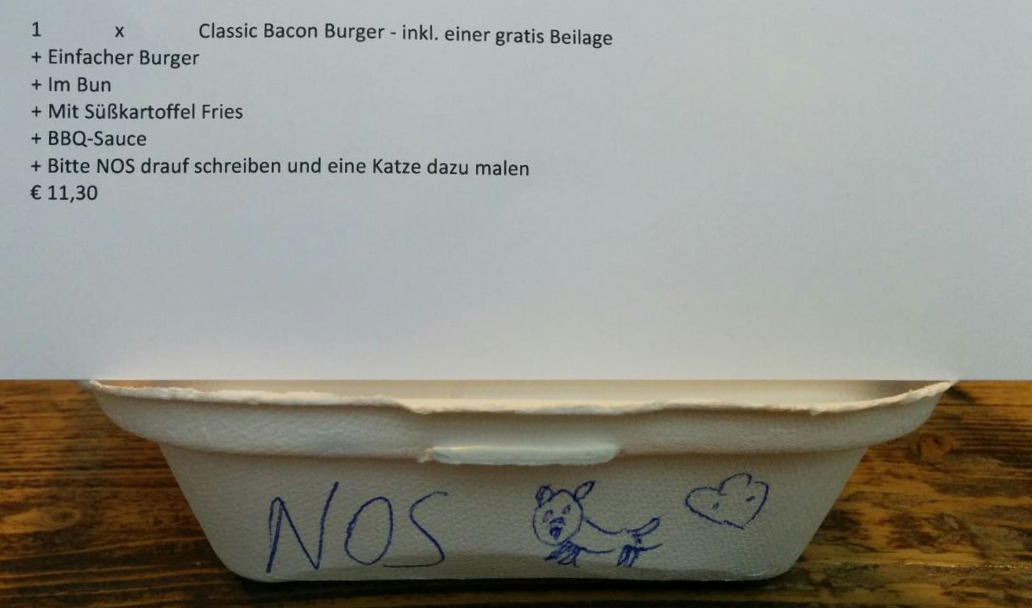 1 x Classic Bacon Burger - inkl. einer gratis Beilage
+ Einfacher Burger
+ Im Bun
+ Mit Süßkartoffel Fries
+ BBQ-Sauce
+ Bitte NOS drauf schreiben und eine Katze dazu malen
€ 11,30
NOS